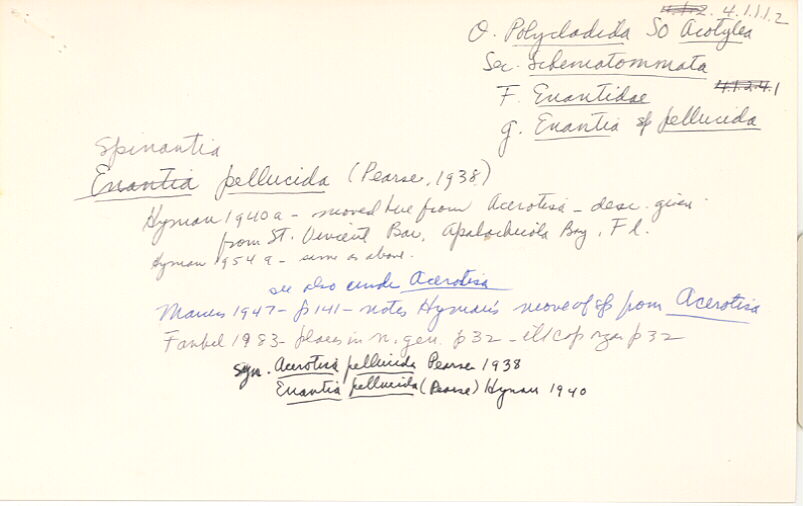 4.1.2. 4.1.1.1.2
O. Polycladida SO Acotylea
Sec. Schematommata
4.1.2.4.1
F. Enantidae
g. Enantia sp pellucida
Spinantia
Enantia pellucida (Pearse, 1938)
Hyman 1940a - moved here from Acerotisa - desc. given
from St. Vincent Bar, Apalachicola Bay, Fl.
Hyman 1954a - same as above.
see also under Acerotisa
Marcus 1947 - p141 - notes Hyman's move of sp from Acerotisa
Faubel 1983 - places in n. gen. p32 - ill cop orgs p32
syn. Acerotisa pellucida Pearse 1938
Enantia pellucida (Pearse) Hyman 1940